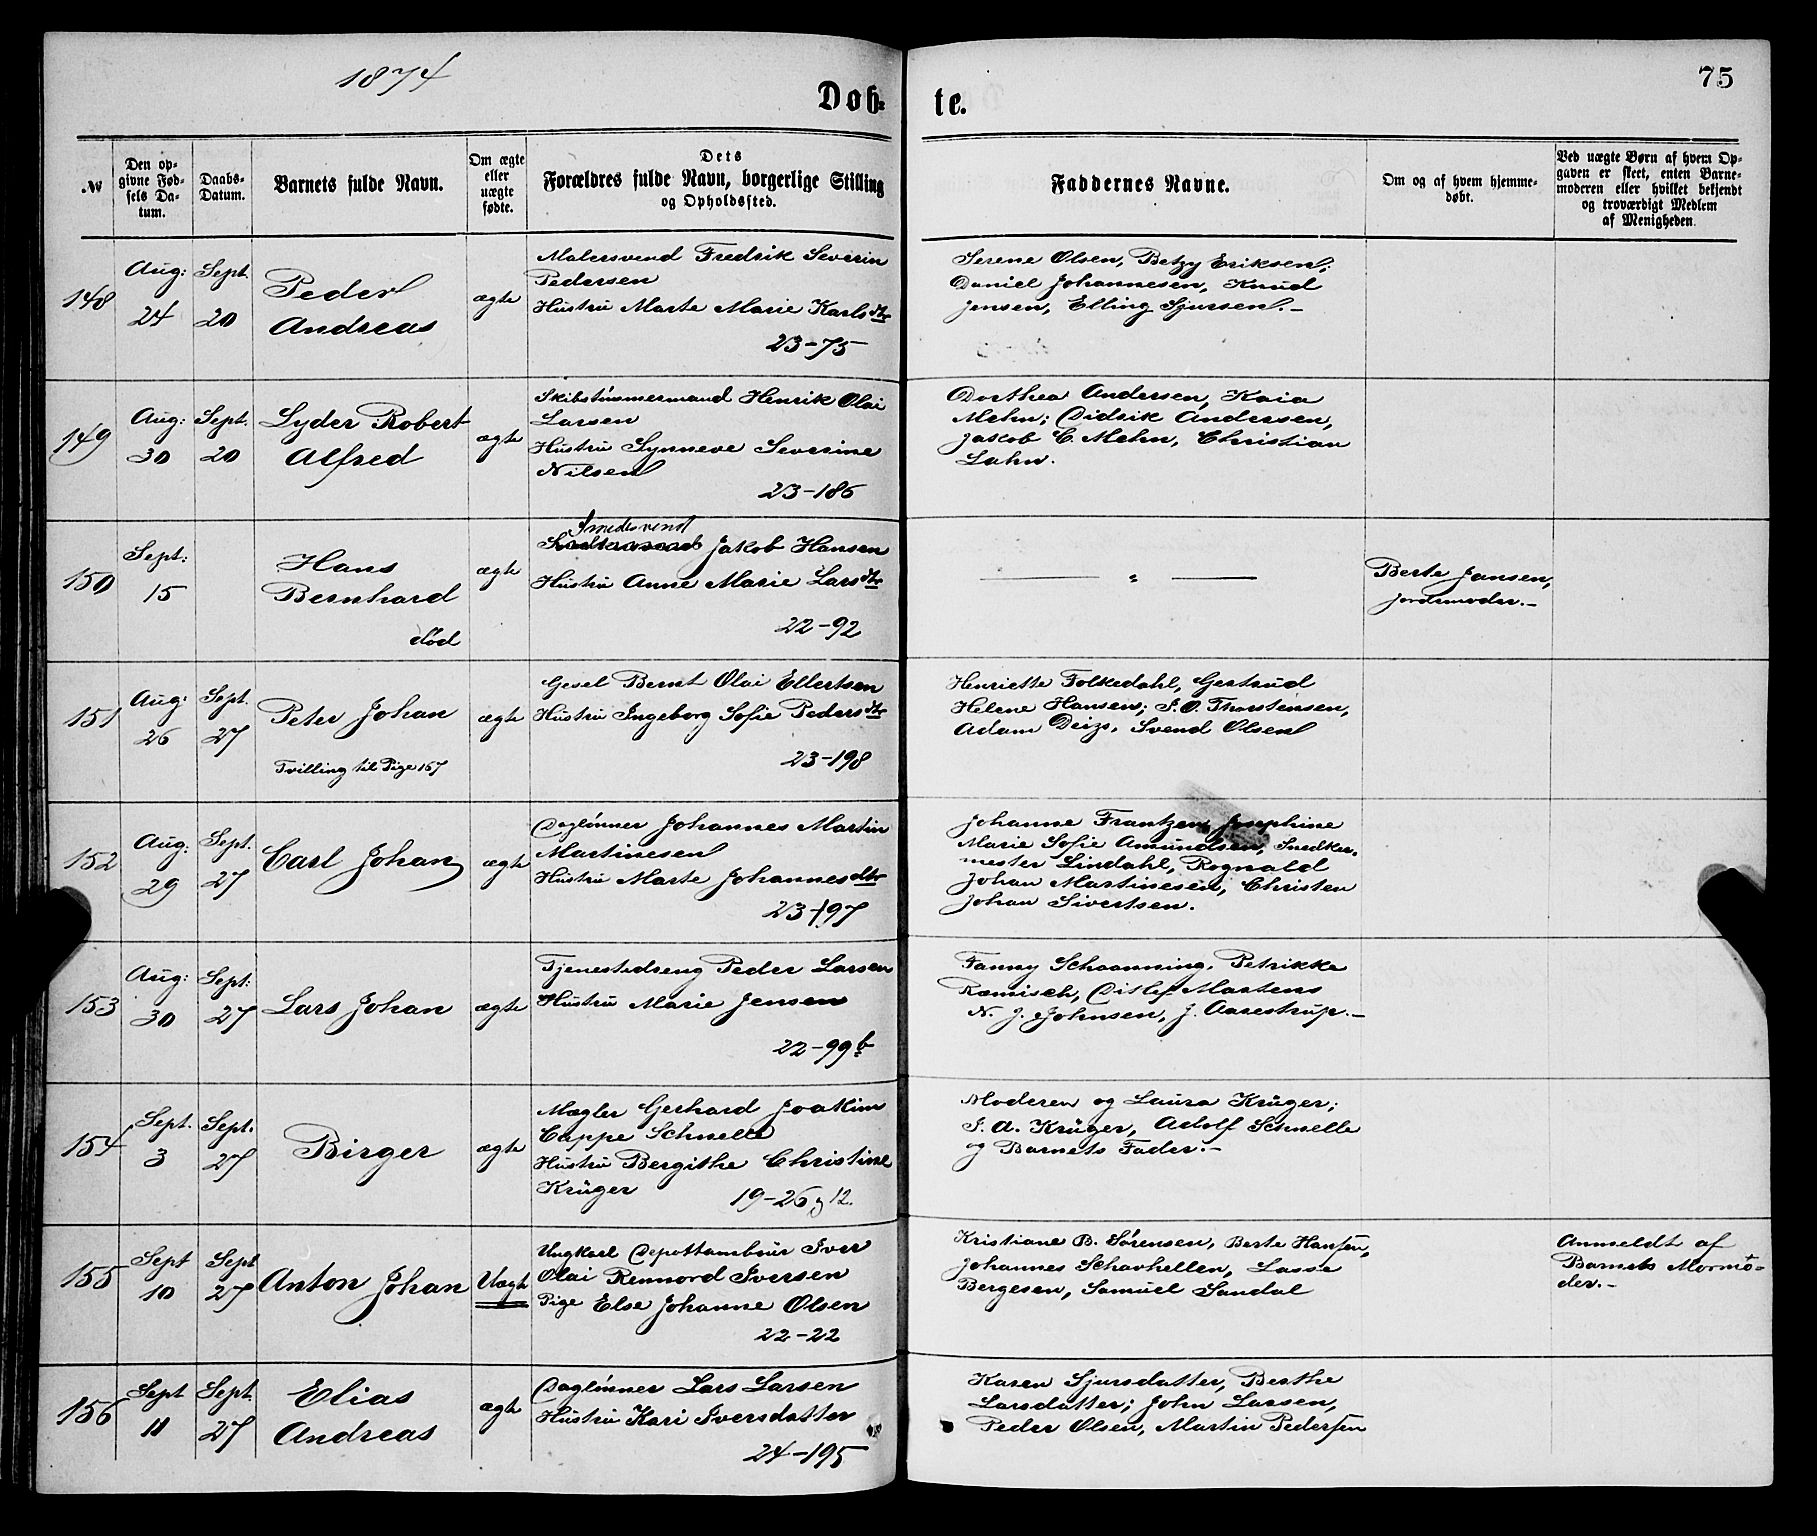 1874
75
Døb-
te.
№
Den op-
givne Fød-
sels Da-
tum.
Daabs-
Datum.
Barnets fulde Navn.
Om ægte
eller
uægte
fødte.
Dets
Forældres fulde Navn, borgerlige Stilling
og Opholdssted.
Faddernes Navne.
Om og af hvem hjemme-
døbt.
Ved uægte Børn af hvem Op-
gaven er skeet, enten Barne-
moderen eller hvilket bekjendt
og troværdigt Medlem
af Menigheden.
148
Aug:
24
Sept.
20
Peder
Andreas
ægte
Malersvend Fredrik Severin
Pedersen
Hustru Marte Marie Karlsdtr
23-75
Serene Olsen, Betzy Eriksen;
Daniel Johannesen, Knud
Jensen, Elling Sjursen.-
149
Aug:
30
Sept.
20
Lyder Robert
Alfred
ægte
Skibstømmermand Henrik Olai
Larsen
Hustru Synneve Severine
Nilsen
23-186
Dorthea Andersen, Kaia
Mehn; Didrik Andersen,
Jakob C. Mehn, Christian
Lahn.
150
Sept:
15
Hans
Bernhard
død
ægte
Smedesvend
Jakob Hansen
Hustru Anne Marie Larsdtr
22-92
— " —
Berte Jansen,
Jordemoder.-
151
Aug:
26
Sept.
27
Peter Johan
Tvilling til Pige 167
ægte
Gesel Bernt Olai Ellertsen
Hustru Ingeborg Sofie Pedersdtr
23-198
Henriette Folkedahl, Gertrud
Helene Hansen; S. O. Thorstensen,
Adam Deizs, Svend Olsen
152
Aug:
29
Sept.
27
Carl Johan
ægte
Daglønner Johannes Martin
Martinesen
Hustru Marte Johannesdtr
23-197
Johanne Frantzen, Josephine
Marie Sofie Amundsen, Snedker-
mester Lindahl, Rognald
Johan Martinesen, Christen
Johan Sivertsen.
153
Aug:
30
Sept:
27
Lars Johan
ægte
Tjenestedreng Peder Larsen
Hustru Marie Jensen
22-99b
Fanny Schaanning, Petrikke
Ræmisch, Ditlef Martens
N. J. Johnsen, J. Aarestrup.-
154
Sept.
3
Sept.
27
Birger
ægte
Mægler Gerhard Joakim
Cappe Schnelle
Hustru Bergithe Christine
Krüger
19-26 g 12.
Moderen og Laura Krüger;
S. A. Krüger, Adolf Schnelle
og Barnets Fader.-
155
Sept
10
Sept
27
Anton Johan
Uægte
Ungkarl Depottambur Iver
Olai Rennord Iversen
Pige Else Johanne Olsen
22-22
Kristiane B. Sørensen, Berte Hansen,
Johannes Schavhellen, Lasse
Bergesen, Samuel Sandal
Anmeldt af
Barnets Mormo-
der.-
156
Sept
11
Sept.
27
Elias
Andreas
ægte
Daglønner Lars Larsen
Hustru Kari Iversdatter
24-195
Karen Sjursdatter, Berthe
Larsdatter; John Larsen,
Peder Olsen, Martin Pedersen